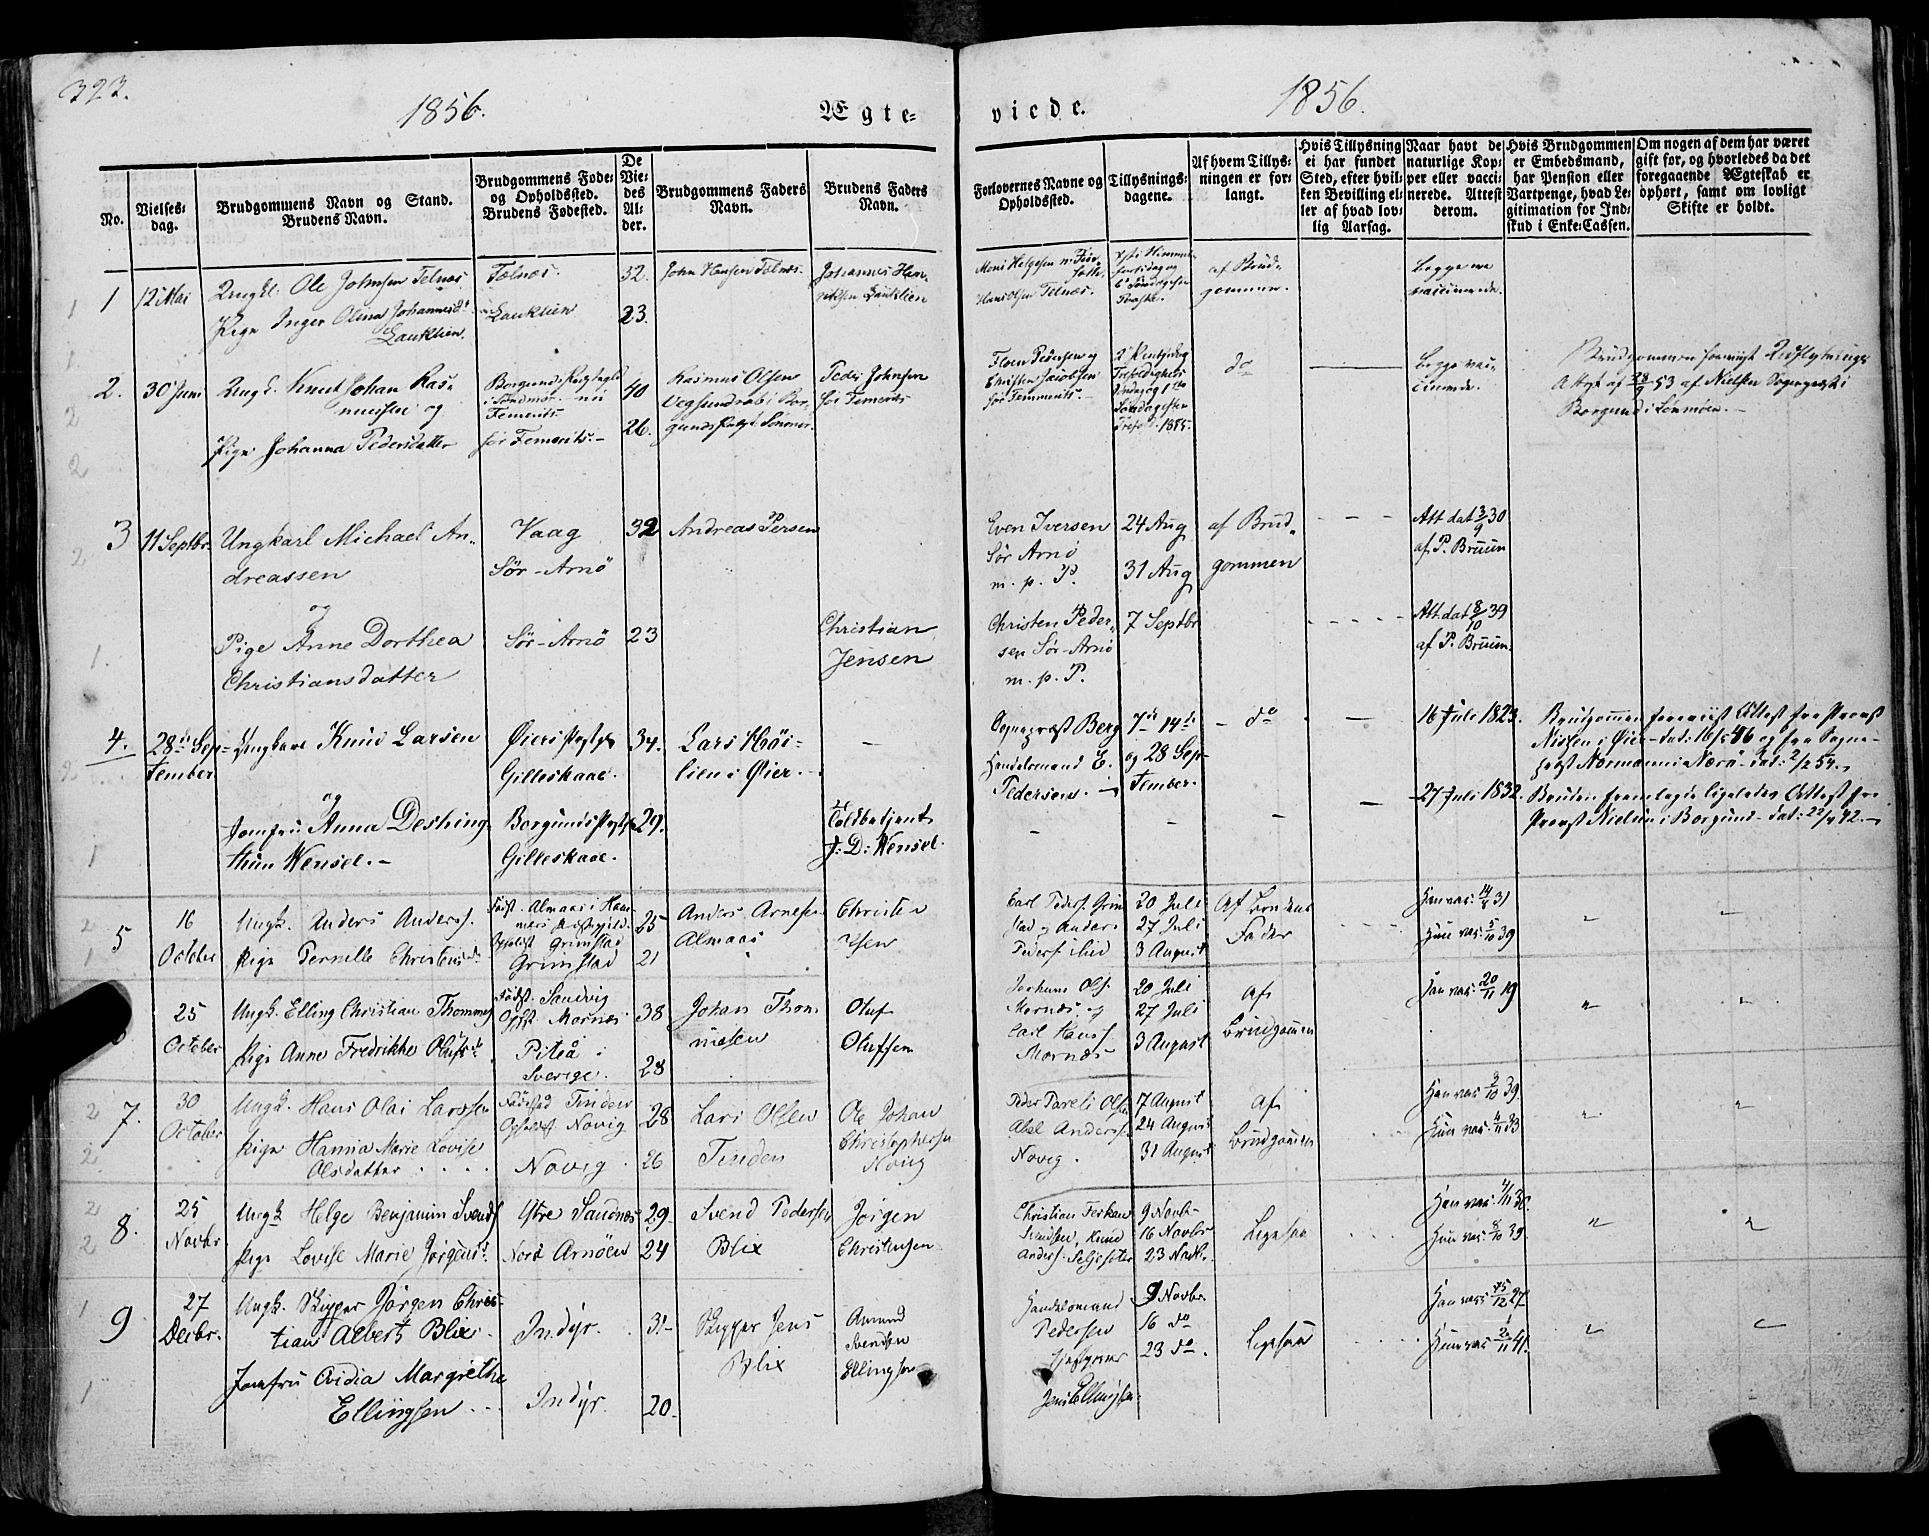 323.
1856.
Ægte-
viede.
1856.
No.
Vielses-
dag.
Brudgommens Navn og Stand.
Brudens Navn.
Brudgommens Føde-
og Opholdssted.
Brudens Fødested.
De
Vie-
des
Al-
der.
Brudgommens Faders
Navn.
Brudens Faders
Navn.
Forlovernes Navne og
Opholdssted.
Tillysnings-
dagene.
Af hvem Tillys-
ningen er for-
langt.
Hvis Tillysning
ei har fundet
Sted, efter hvil-
ken Bevilling el-
ler af hvad lov-
lig Aarsag.
Naar havt de
naturlige Kop-
per eller vacci-
nerede. Attest
derom.
Hvis Brudgommen
er Embedsmand,
har Pension eller
Vartpenge, hvad Le-
gitimation for Ind-
skud i Enke-Cassen.
Om nogen af dem har været
gift før, og hvorledes da det
foregaaende Ægteskab er
ophørt, samt om lovligt
Skifte er holdt.
1
12 Mai
Ungk. Ole Johnsen Telnæs
Pige Inger Olina Johannesd.
Lauklien.
Telnæs.
Lauklien
32.
23.
John Hansen Telnæs.
Johannes Hen-
riksen Lauklien
Hans Olsen Telnæs.
af Brud-
gommen.
Begge ere
vaccinerede.
2.
30 Juni
Ungk. Knut Johan Ras-
mussen og
Pige Johanna Pedersdatter
40
26.
Rasmus Olsen
Peder Johnsen
Christen Jacobsen
do
Begge vac-
cinerede.
Borgund i Sønmør. -
3
11 Septbr.
Ungkarl Michael An-
dreassen
og
Pige Anne Dorthea
Christiansdatter
Vaag
Sør-Arnö
Sør-Arnö
32
23
Andreas Persen
Christian
Jensen
Even Iversen
Sør Arnö
m. p. P.
Christen Peder-
sen Sør-Arnö
m. p. P.
24 Aug
31 Aug
7 Septbr
af Brud-
gommen
Att. dat 3/9 30
af P. Bruun
Att. dat 8/10 39
af P. Bruun.
4.
28de Sep-
tember
Ungkarl Knud Larsen
og
Jomfru Anna Desking-
thun Wensel. -
Øiers Prstgj
Gilleskaal.
Borgunds Prstgj
Gilleskaal.
34.
29.
Lars Höi-
lien i Øier. -
Toldbetjent
J: D: Wensel.
Sogneprest Berg
Handelsmand E.
Pedersen. -
7de 14de
og 28 Sep-
tember.
do
16 Juli 1823.
27 Juli 1832.
Brudgommen foreviist Attest fra Provst
Nissen i Øier - dat: 16/5 46 og fra Sogne-
prest Normann i Nærö - dat: 2/2 54. -
Bruden fremlagde ligeledes Attest fra
Provst Nielsen i Borgund - dat: 22/4 42. -
5
16
October
Ungk. Anders Anders.
Pige Pernille Christens
Grimstad
25
21
Anders Arnesen
Almaas
Christen
20 Juli
27 Juli
3 August
Af Brudens
Fader
Han vac. 14/4 31
Hun vac. 5/10 39
25
October
Ungk. Elling Christian Thommes
Pige Anne Fredrikke Olufsd.
Fødst. Sandvig
Opst. Mornæs
Piteå i
Sverige.
38
28
Johan Thom-
mesen
Oluf
Olufsen
Mornæs og
Carl Hans
Mornæs
20 Juli
27 Juli
3 August
Af
Brudgommen
Han vac. 20/11 19
7.
30
October
Ungk. Hans Olai Larssen
Pige Hanna Marie Lovise
Olsdatter
Fødested Tinden
Opholdst Novig
Novig
28
26
Lars Olsen
Tinden
Ole Johan
Christophersen
Novig
Peder Parelii Olsen
Abel Anders
Novig.
17 August
24 August
31 August
Af
Brudgommen
Han vac. 3/10 39
Hun vac. 4/11 33
8.
25
Novbr
Ungk Helge Benjamin Svends
Pige Lovise Marie Jörgens.
Ytre Sandnæs
Nord Arnöen
29
24
Svend Pedersen
Blix
Jörgen
Christensen
9 Novbr
16 Novbr
23 Novbr.
Ligesaa
Han vac. 4/11 30.
Hun vac. 8/10 39.
9
27
Decbr.
Ungk. Skipper Jörgen Chris-
tian Albert Blix.
Jomfru Ovidia Margrethe
Ellingsen
Indyr.
Indyr.
31
20.
Skipper Jens
Blix
Amund
Svendsen
Ellingsen
Handelsmand
Pedersen
Jens Ellingsen
9 Novbr.
16 do
23 do.
Ligesaa
Han vac. 15/12 27